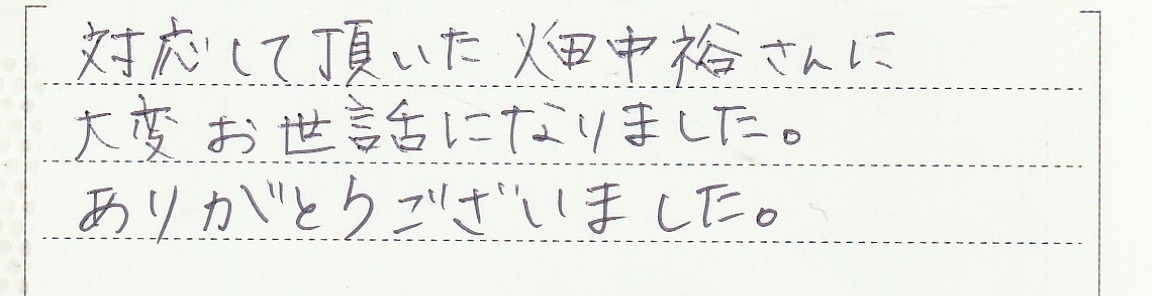 対応して頂いた畑中裕さんに
大変お世話になりました。
ありがとうございました。